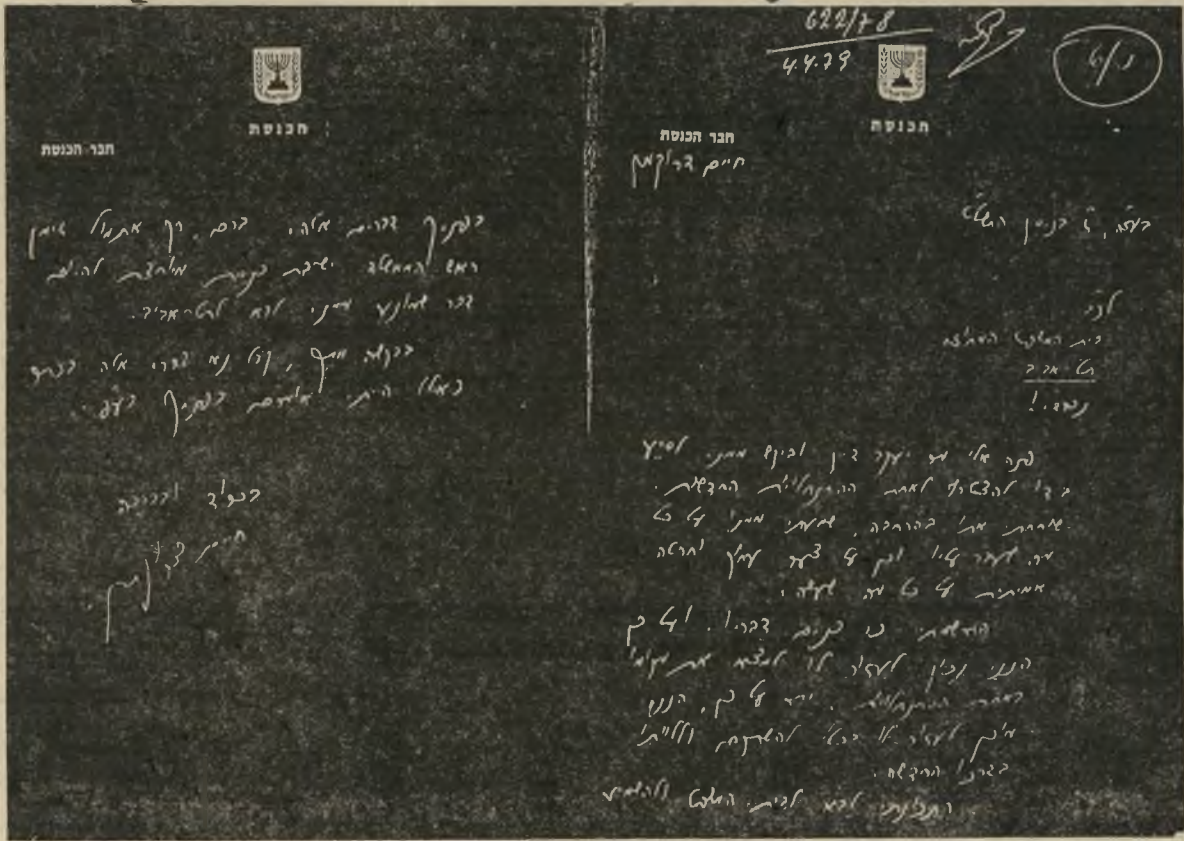 622/78
4.4.79
נ/6
הכנסת
חבר הכנסת
חיים דרוקמן
בע"ה, ז' בניסן תשל"ט
לכב'
בית המשפט המחוזי
תל אביב
נכבדי!
פנה אלי מר יעקב דיין וביקש ממני לסייע
בידו להצטרף לאחת ההתנחלויות החדשות.
שוחחתי אתו בהרחבה, שמעתי ממנו על כל
מה שעבר עליו וכן על צער עמוק וחרטה
אמיתית על כל מה שעשה.
התרשמתי כי כנים דבריו. ועל כן
הנני נכון לעזור לו למצא את מקומו
באחת ההתנחלויות. יתר על כן, הנני
מוכן לעזור לו כדי להשתקם וללוותו
בדרכו החדשה.
התכוונתי לבא לבית המשפט ולהשמיע
הכנסת
חבר הכנסת
בפניך דברים אלה. ברם, רק אתמול זימן
ראש הממשלה ישיבת כנסת מיוחדת להיום
דבר שמונע ממני לבא לתל-אביב.
בבקשה ממך, קבל נא דברי אלה בכתב
כאלו הייתי אומרם בפניך בע"פ.
בכבוד ובברכה
חיים דרוקמן